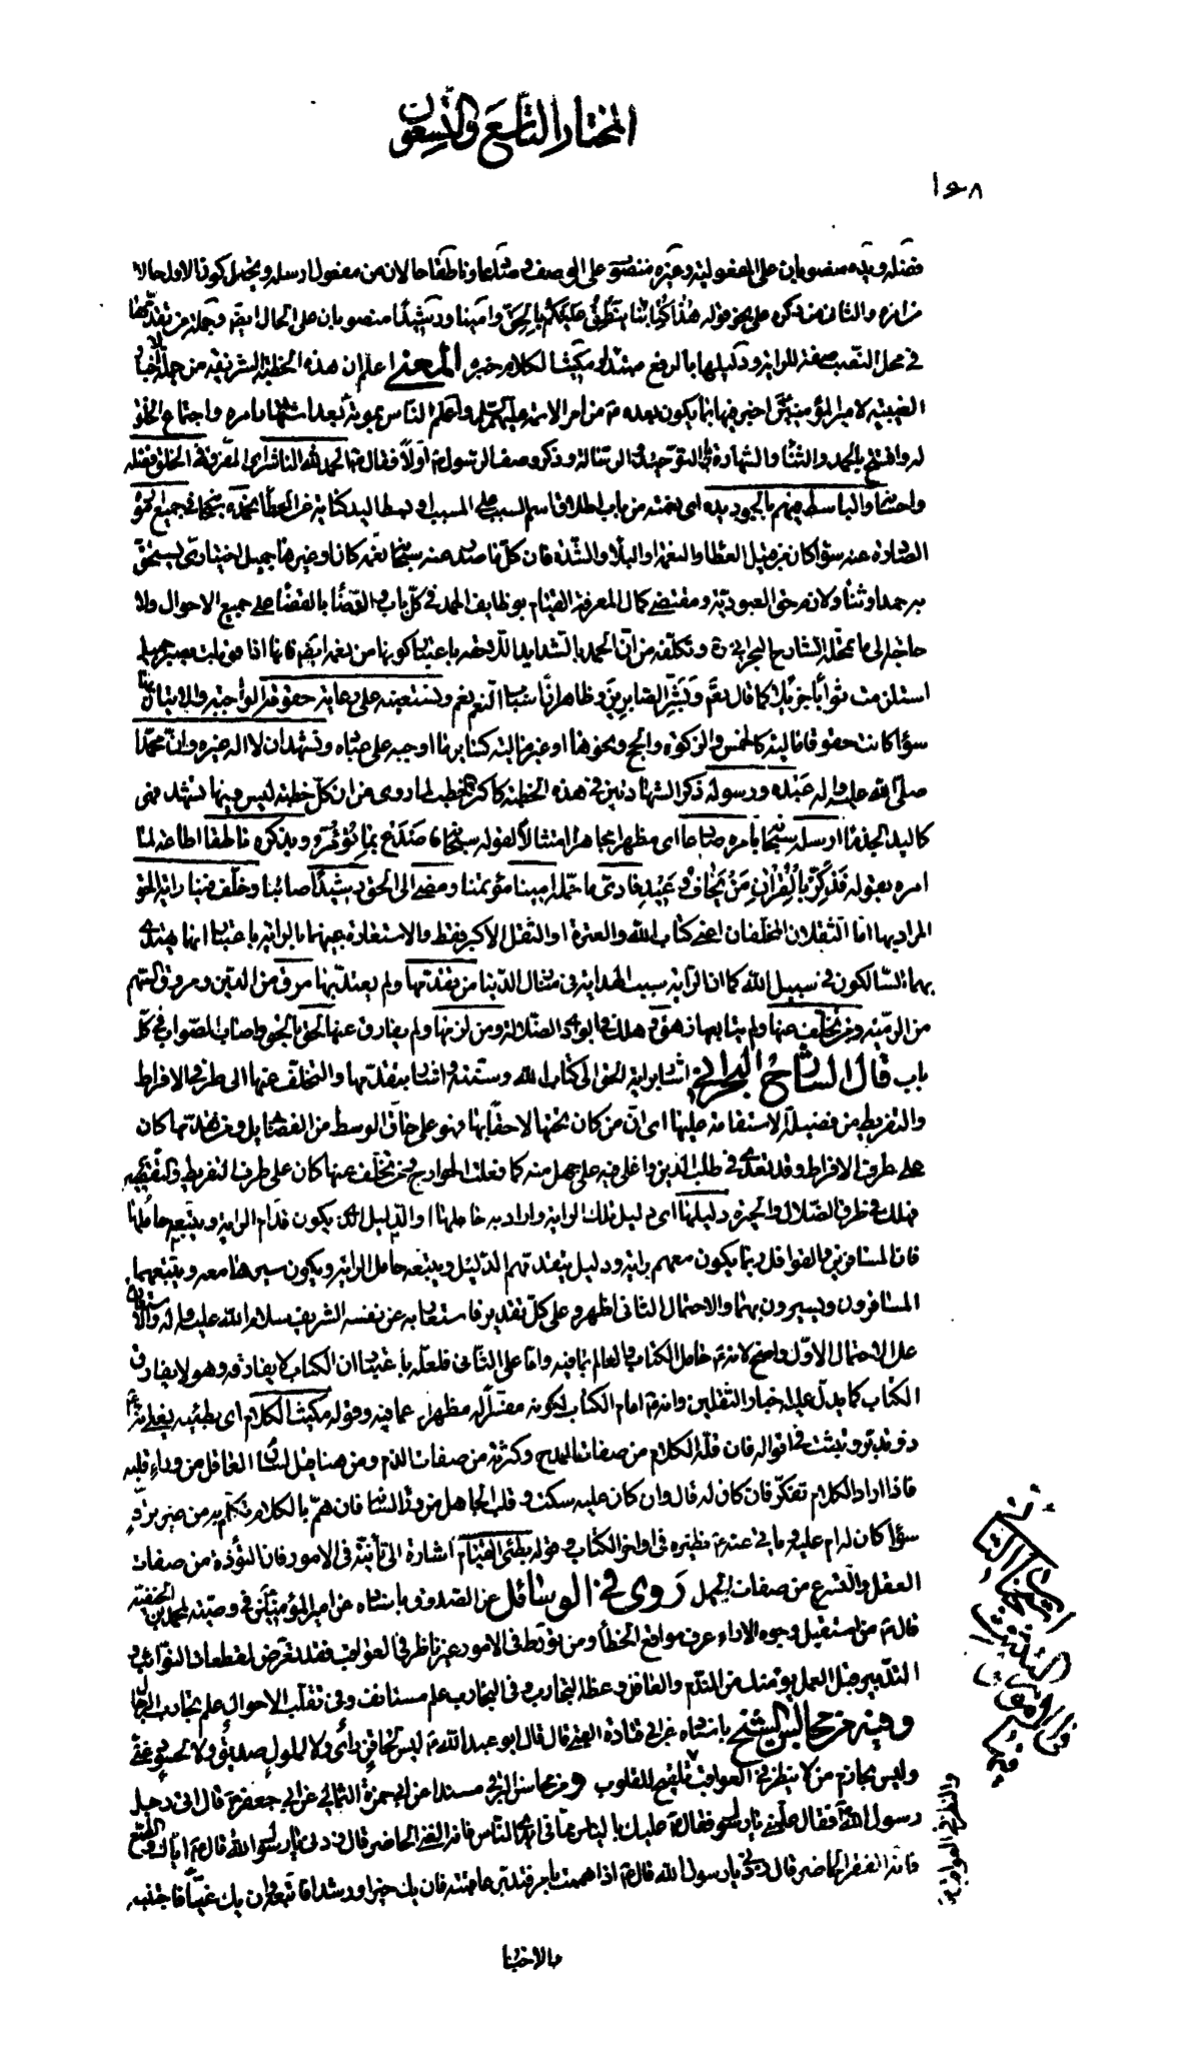 المختار التاسع والتسعون
١٥٨
فضله ويده منصوبان على المفعولية وغيره منصوب على الوصف وصادعا وناطقا حالان من مفعول ارسله ويحتمل كون الاول حالا
من امره والثانى من ذكره على نحو قوله هذا كتابنا ينطق عليكم بالحق وامينا ورشيدا منصوبان على الحال ايضا وجملة من تقدمها
فى محل النصب صفة للراية ودليلها بالرفع مبتدا ومكيث الكلام خبره المعنى اعلم ان هذه الخطبة الشريفة من جملة الاخبار
الغيبية لامير المؤمنين اخبر فيها بما يكون بعده من امر الائمة واعلم الناس بموته بعد اشتهار امره واجتماع الخلق
له وافتتح بالحمد والثناء والشهادة بالتوحيد والرسالة وذكر وصف الرسول اولا فقال الحمد لله الناشر اى المفرق فى الخلق فضله
واحسانه والباسط فيهم بالجود يده اى نعمته من باب اطلاق اسم السبب على المسبب او بسط اليد كناية عن العطاء نحمده سبحانه فى جميع اموره
الصادرة عنه سواء كان من قبيل العطاء والنعم او البلاء والشدة فان كل ما صدر عنه سبحانه نعمة كان او غيرها جميل اختيارى يستحق
به حمدا وثناء ولانه حق العبودية ومقتضى كمال المعرفة القيام بوظايف الحمد فى كل باب والرضا بالقضاء على جميع الاحوال ولا
حاجة الى ما تمحله الشارح البحرانى وتكلفه من ان الحمد بالشدايد اللاحقة باعتبار كونها من نعمه ايضا فانها اذا قوبلت بصبر جميل
استلزمت ثوابا جزيلا كما قال تعالى وبشر الصابرين وظاهر ان اسباب النعم نعم ونستعينه على رعاية حقوقه الواجبة والاتيان بها
سواء كانت حقوقا مالية كالخمس والزكوة والحج ونحوها او غير مالية كسائر ما اوجبه على عباده ونشهد ان لا اله غيره وان محمدا
صلى الله عليه واله عبده ورسوله ذكر الشهادتين فى هذه الخطبة كاكثر الخطب لما روى من ان كل خطبة ليس فيها تشهد فهى
كاليد الجذماء ارسله سبحانه بامره صادعا اى مظهرا مجاهرا امتثالا لقوله سبحانه فاصدع بما تؤمر وبذكره ناطقا اطاعة لما
امره بقوله فذكر بالقران من يخاف وعيد فادى ما حمله امينا مؤتمنا ومضى الى الحق رشيدا صائبا وخلف فينا راية الحق
المراد بها اما الثقلان المخلفان اعنى كتاب الله والعترة او الثقل الاكبر فقط والاستعارة عنهما بالراية باعتبار انها يهتدى
بهما السالكون فى سبيل الله كما ان الراية سبب الهداية فى متنال الدنيا من تقدمها ولم يعتد بها مرق من الدين ومروق السهم
من الرمية ومن تخلف عنها ولم يتابعها زهق وهلك فى بوادى الضلالة ومن لزمها ولم يفارق عنها لحق بالحق واصاب الصواب فى كل
باب قال الشارح البحرانى اشار براية الحق الى كتاب الله وسنته واشار بتقدمها والتخلف عنها الى طرفى الافراط
والتفريط من فضيلة الاستقامة عليها اى ان من كان تحتها لاحقا بها فهو على حاق الوسط من الفضايل ومن تقدمها كان
على طرف الافراط وقد تعدى فى طلب الدين واغلى فيه على جهل منه كما فعلت الخوارج ومن تخلف عنها كان على طرف التفريط والتقصير
فهلك فى طرف الضلال والحيرة دليلها اى دليل تلك الراية واراد به حاملها او الدليل الذى يكون قدام الراية ويتبعه حاملها
فان المسافرين والقوافل ربما يكون معهم راية ودليل يتقدمهم الدليل ويتبعه حامل الراية ويكون سيرها معه ويتبعهما
المسافرون ويسيرون بهما والاحتمال الثانى اظهر وعلى كل تقدير فاستعار به عن نفسه الشريف سلام الله عليه وله والاستعارة
على الاحتمال الاول واضح لانه حامل الكتاب والعالم بما فيه واما على الثانى فلعله باعتبار ان الكتاب لا يفارقه وهو لا يفارق
الكتاب كما يدل عليه اخبار الثقلين وانه امام الكتاب لكونه مفسرا له مظهرا عما فيه وقوله مكيث الكلام اى بطيئه يعنى انه
ذو تدبر وتثبت فى اقواله فان قلة الكلام من صفات المدح وكثرته من صفات الذم ومن هنا قيل لسان العاقل من وراء قلبه
فاذا اراد الكلام تفكر فان كان له قال وان كان عليه سكت وقلب الجاهل من وراء لسانه فان هم بالكلام تكلم به من غير ترو
سواء كان له ام عليه وياتى عنه نظيره فى اواخر الكتاب وقوله بطئ القيام اشارة الى تأنيه فى الامور فان التؤدة من صفات
العقل والتسرع من صفات الجهل روى فى الوسائل عن الصدوق باسناده عن امير المؤمنين فى وصيته لمحمد بن الحنفية
قال من استقبل وجوه الاراء عرف مواقع الخطاء ومن تورط فى الامور غير ناظر فى العواقب فقد تعرض لمفظعات النوائب و
التدبير قبل العمل يؤمنك من الندم والعاقل من وعظه التجارب وفى التجارب علم مستانف وفى تقلب الاحوال علم تجارب الرجال
وفيه من مجالس الشيخ باسناده عن ابى قتادة القمى قال قال ابو عبد الله ليس لحاقن رأى ولا لملول صديق ولا لحسود غنى
وليس بحازم من لا ينظر فى العواقب والنظر فى العواقب تلقيح للقلوب ومن محاسن البرقى مسندا عن ابى حمزة الثمالى عن ابى جعفر قال اتى رجل
رسول الله فقال علمنى يا رسول الله فقال عليك باليأس مما فى ايدى الناس فانه الغنى الحاضر قال زدنى يا رسول الله قال اياك والطمع
فانه الفقر الحاضر قال زدنى يا رسول الله قال اذا هممت بامر فتدبر عاقبته فان يك خيرا ورشدا فاتبعه وان يك غيا فاجتنبه
والاخبار